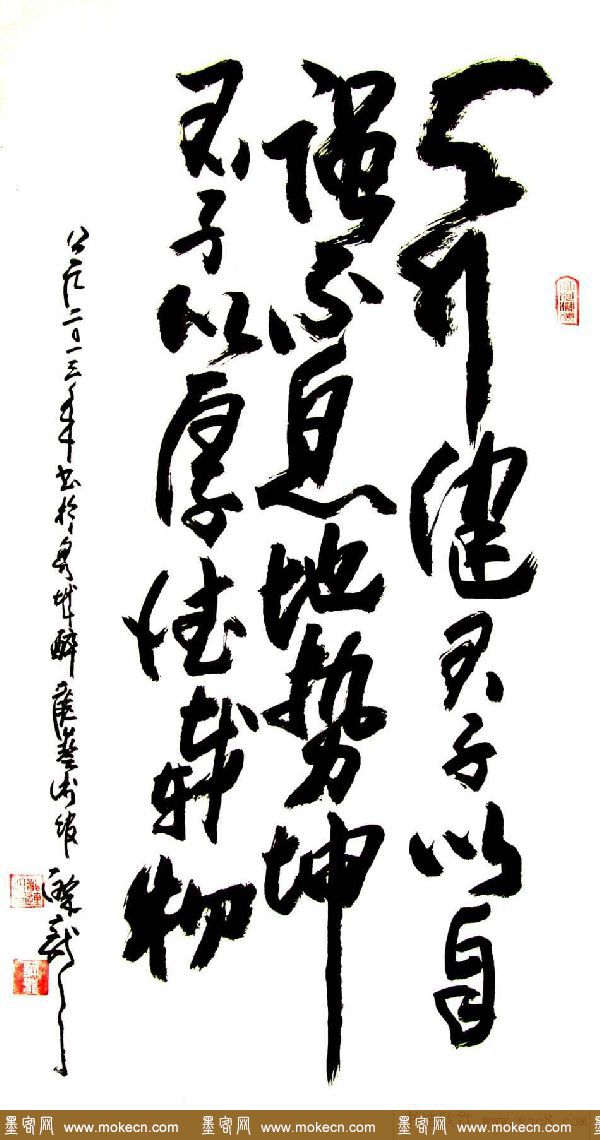 天行健君子以自
强不息地势坤
君子以厚德载物
公元二〇一三年书於泉城醉
墨客网 www.mokecn.com 墨客网 www.mokecn.com 墨客网 www.mokecn.com